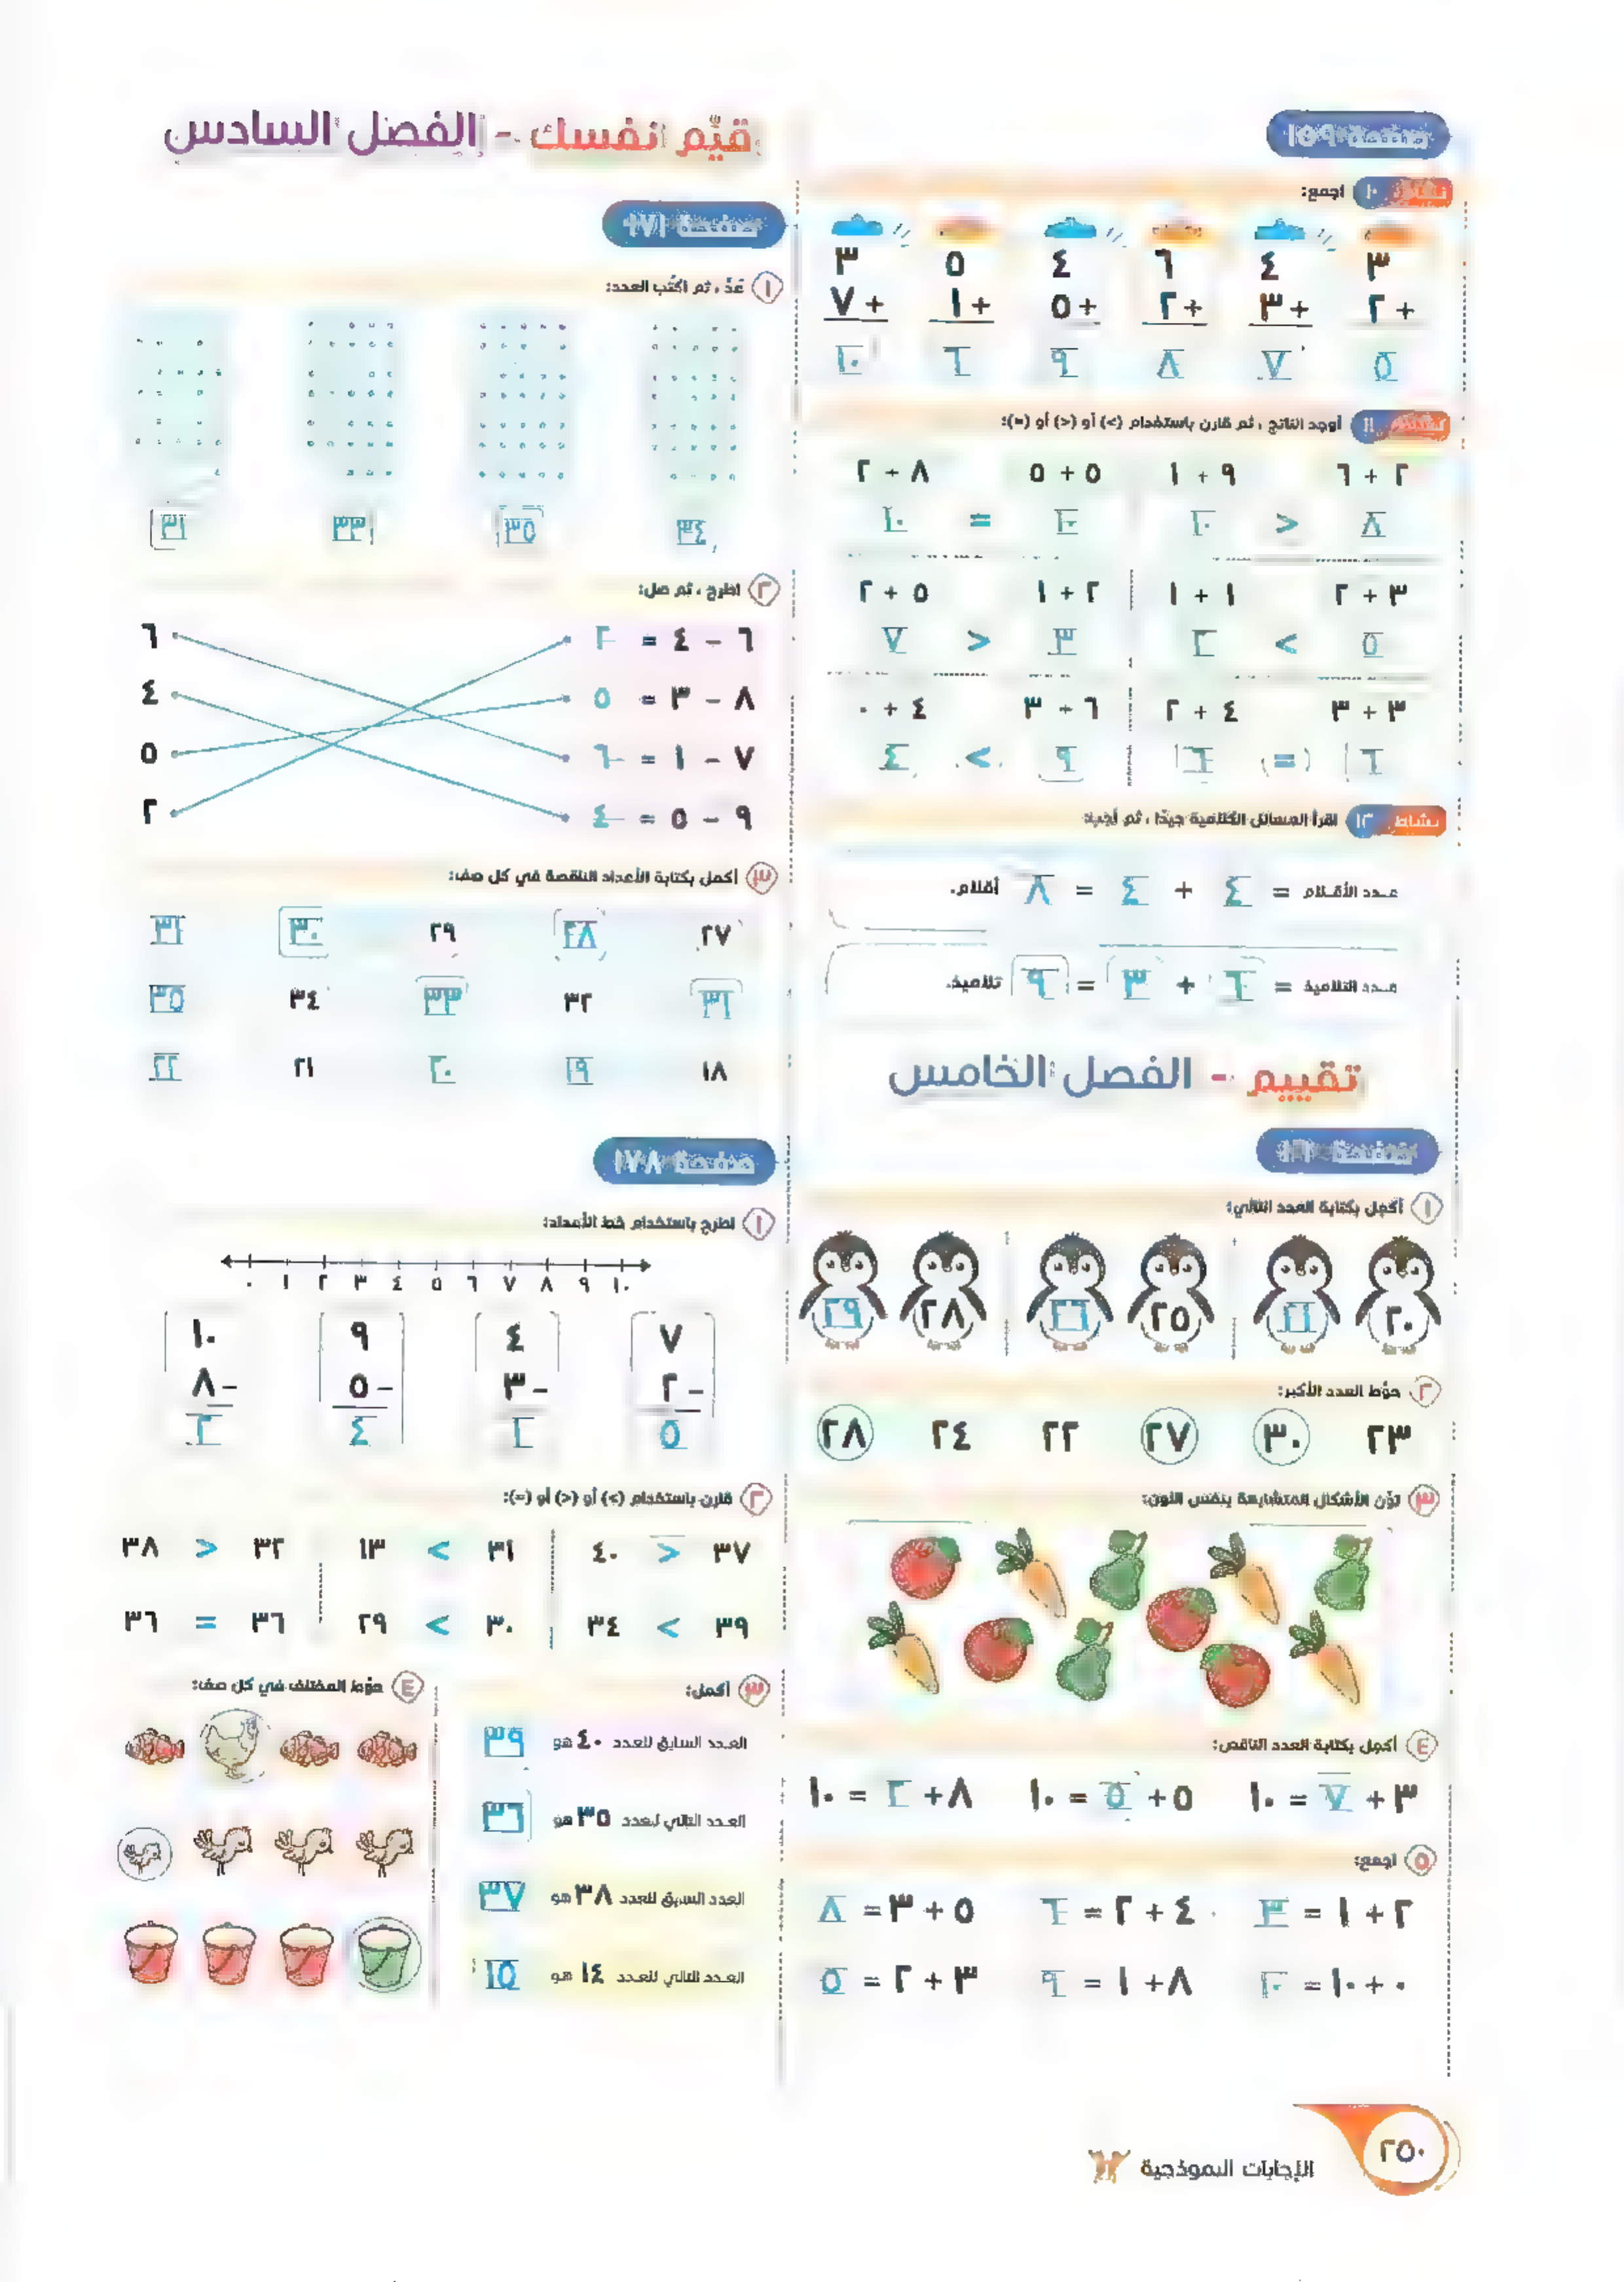 صفحة ١٥٩
نشاط ١٠ اجمع:
٣ ٤ ٦ ٤ ٥ ٣
+ ٢ + ٣ + ٢ + ٥ + ١ + ٧
٥ ٧ ٨ ٩ ٦ ١٠
نشاط ١١ أوجد الناتج ، ثم قارن باستخدام (>) أو (<) أو (=):
٢ + ٦ ٩ + ١ ٥ + ٥ ٨ + ٢
٨ < ١٠ ١٠ = ١٠
٣ + ٢ ١ + ١ ٢ + ١ ٥ + ٢
٥ > ٢ ٣ < ٧
٣ + ٣ ٤ + ٢ ٦ + ٣ ٤ + ٠
٦ (=) ٦ ٩ > ٤
نشاط ١٢ اقرأ المسائل الكلامية جيدًا ، ثم أجب:
عدد الأقلام = ٤ + ٤ = ٨ أقلام.
عدد التلاميذ = ٦ + ٣ = ٩ تلاميذ.
تقييم - الفصل الخامس
١ أكمل بكتابة العدد التالي:
٢٠ ٢١ ٢٥ ٢٦ ٢٨ ٢٩
٢ حوّط العدد الأكبر:
٢٣ ٣٠ ٢٧ ٢٢ ٢٤ ٢٨
٣ لوّن الأشكال المتشابهة بنفس اللون:
٤ أكمل بكتابة العدد الناقص:
٣ + ٧ = ١٠ ٥ + ٥ = ١٠ ٨ + ٢ = ١٠
٥ اجمع:
٢ + ١ = ٣ ٤ + ٢ = ٦ ٥ + ٣ = ٨
٠ + ١٠ = ١٠ ٨ + ١ = ٩ ٣ + ٢ = ٥
قيّم نفسك - الفصل السادس
صفحة ١٧١
١ عُدّ ، ثم اكتب العدد:
٣٤ ٣٥ ٣٣ ٣١
٢ اطرح ، ثم صل:
٦ - ٤ = ٢ ٦
٨ - ٣ = ٥ ٤
٧ - ١ = ٦ ٥
٩ - ٥ = ٤ ٢
٣ أكمل بكتابة الأعداد الناقصة في كل صف:
٢٧ ٢٨ ٢٩ ٣٠ ٣١
٣١ ٣٢ ٣٣ ٣٤ ٣٥
١٨ ١٩ ٢٠ ٢١ ٢٢
صفحة ١٧٨
١ اطرح باستخدام خط الأعداد:
٠ ١ ٢ ٣ ٤ ٥ ٦ ٧ ٨ ٩ ١٠
٧ ٤ ٩ ١٠
- ٢ - ٣ - ٥ - ٨
٥ ١ ٤ ٢
٢ قارن باستخدام (>) أو (<) أو (=):
٣٧ < ٤٠ ٣١ > ١٣ ٣٢ < ٣٨
٣٩ > ٣٤ ٣٠ > ٢٩ ٣٦ = ٣٦
٣ أكمل:
العدد السابق للعدد ٤٠ هو ٣٩
العدد التالي للعدد ٣٥ هو ٣٦
العدد السابق للعدد ٣٨ هو ٣٧
العدد التالي للعدد ١٤ هو ١٥
٤ حوّط المختلف في كل صف:
٢٥٠
الإجابات النموذجية